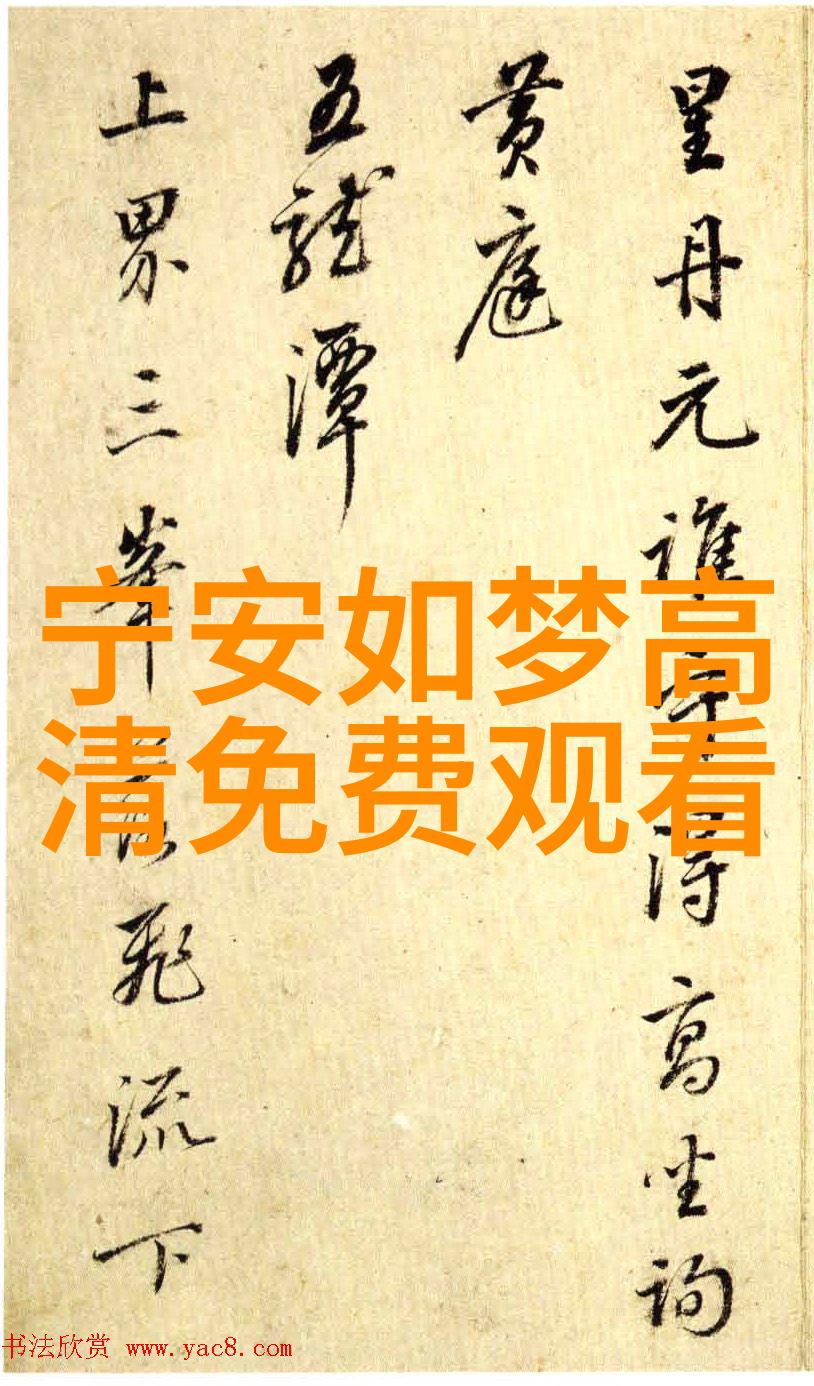 星丹元誰得高坐詢
黄庭
五龍潭
上界三峯飛流下
宁安如梦高
清免费观看
书法欣赏 www.yac8.com